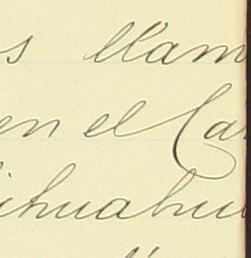 s llam
en el Ca
ihuahu